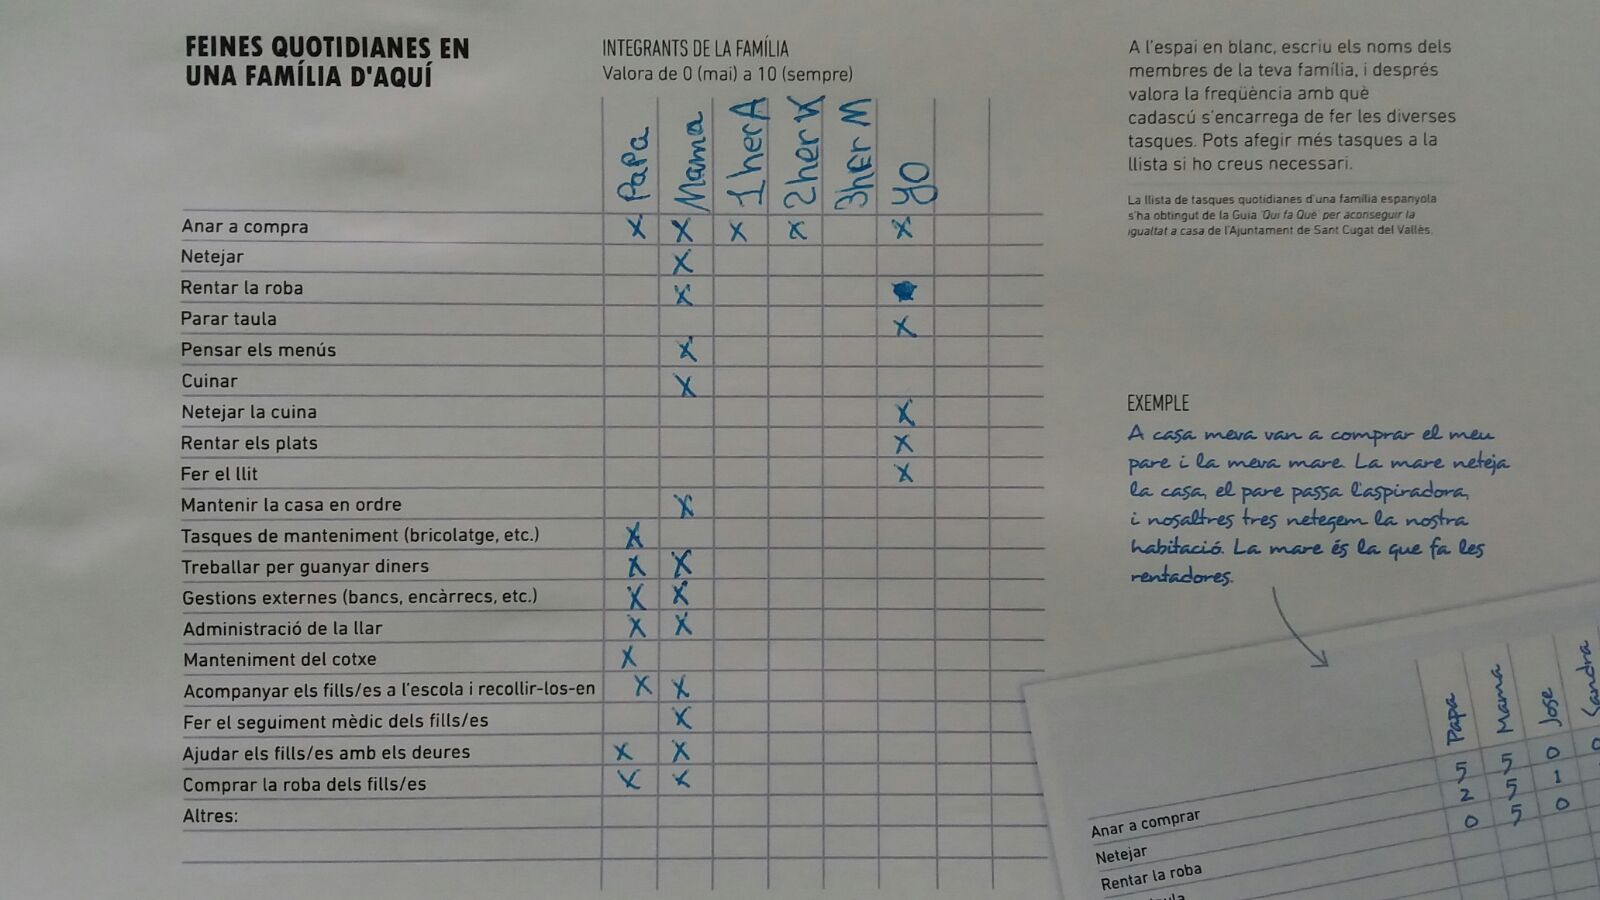 FEINES QUOTIDIANES EN
UNA FAMÍLIA D'AQUÍ
INTEGRANTS DE LA FAMÍLIA
Valora de 0 (mai) a 10 (sempre)
Papa Mama 1herA 2her K 3hEr M yo
Anar a compra x x x x x
Netejar x
Rentar la roba x
Parar taula x
Pensar els menús x
Cuinar x
Netejar la cuina x
Rentar els plats x
Fer el llit x
Mantenir la casa en ordre x
Tasques de manteniment (bricolatge, etc.) x
Treballar per guanyar diners x x
Gestions externes (bancs, encàrrecs, etc.) x x
Administració de la llar x x
Manteniment del cotxe x
Acompanyar els fills/es a l'escola i recollir-los-en x x
Fer el seguiment mèdic dels fills/es x
Ajudar els fills/es amb els deures x x
Comprar la roba dels fills/es x x
Altres:
A l'espai en blanc, escriu els noms dels
membres de la teva família, i després
valora la freqüència amb què
cadascú s'encarrega de fer les diverses
tasques. Pots afegir més tasques a la
llista si ho creus necessari.
La llista de tasques quotidianes d'una família espanyola
s'ha obtingut de la Guia 'Qui fa Què' per aconseguir la
igualtat a casa de l'Ajuntament de Sant Cugat del Vallès.
EXEMPLE
A casa meva van a comprar el meu
pare i la meva mare. La mare neteja
la casa, el pare passa l'aspiradora,
i nosaltres tres netegem la nostra
habitació. La mare és la que fa les
rentadores.
Papa Mama Jose Sandra
Anar a comprar 5 5 0 0
Netejar 2 5 1
Rentar la roba 0 5 0